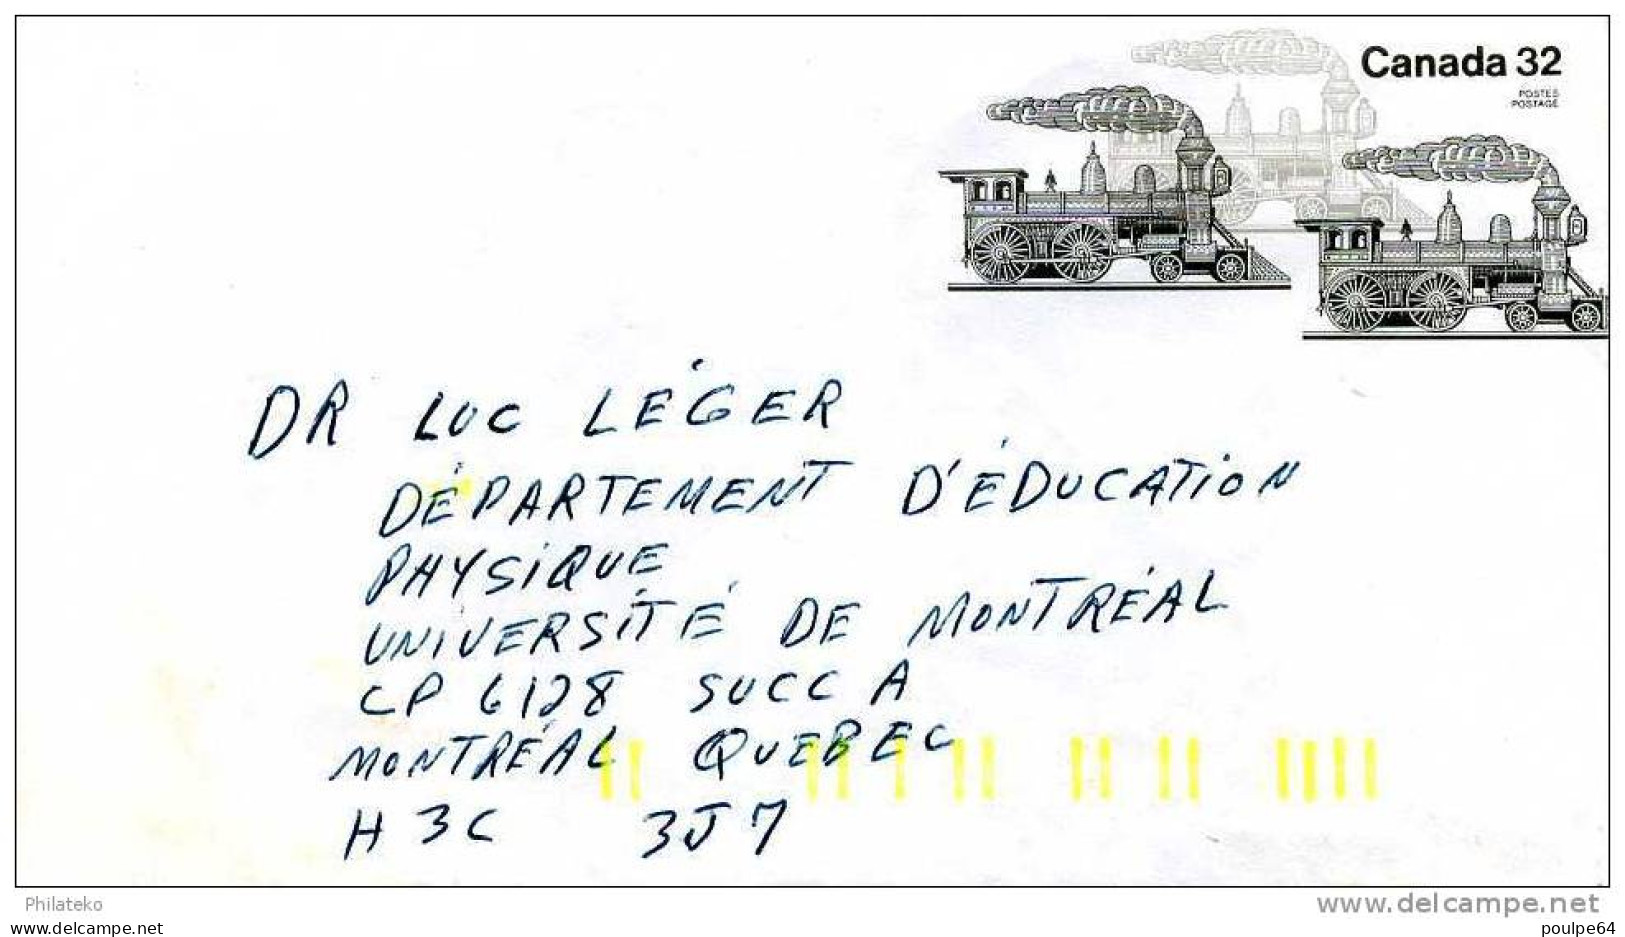 Canada 32
POSTES
POSTAGE
DR LUC LÉGER
DÉPARTEMENT D'ÉDUCATION
PHYSIQUE
UNIVERSITÉ DE MONTRÉAL
CP 6128 SUCC A
MONTRÉAL QUEBEC
H3C 3J7
Philateko
www.delcampe.net
www.delcampe.net
poulpe64